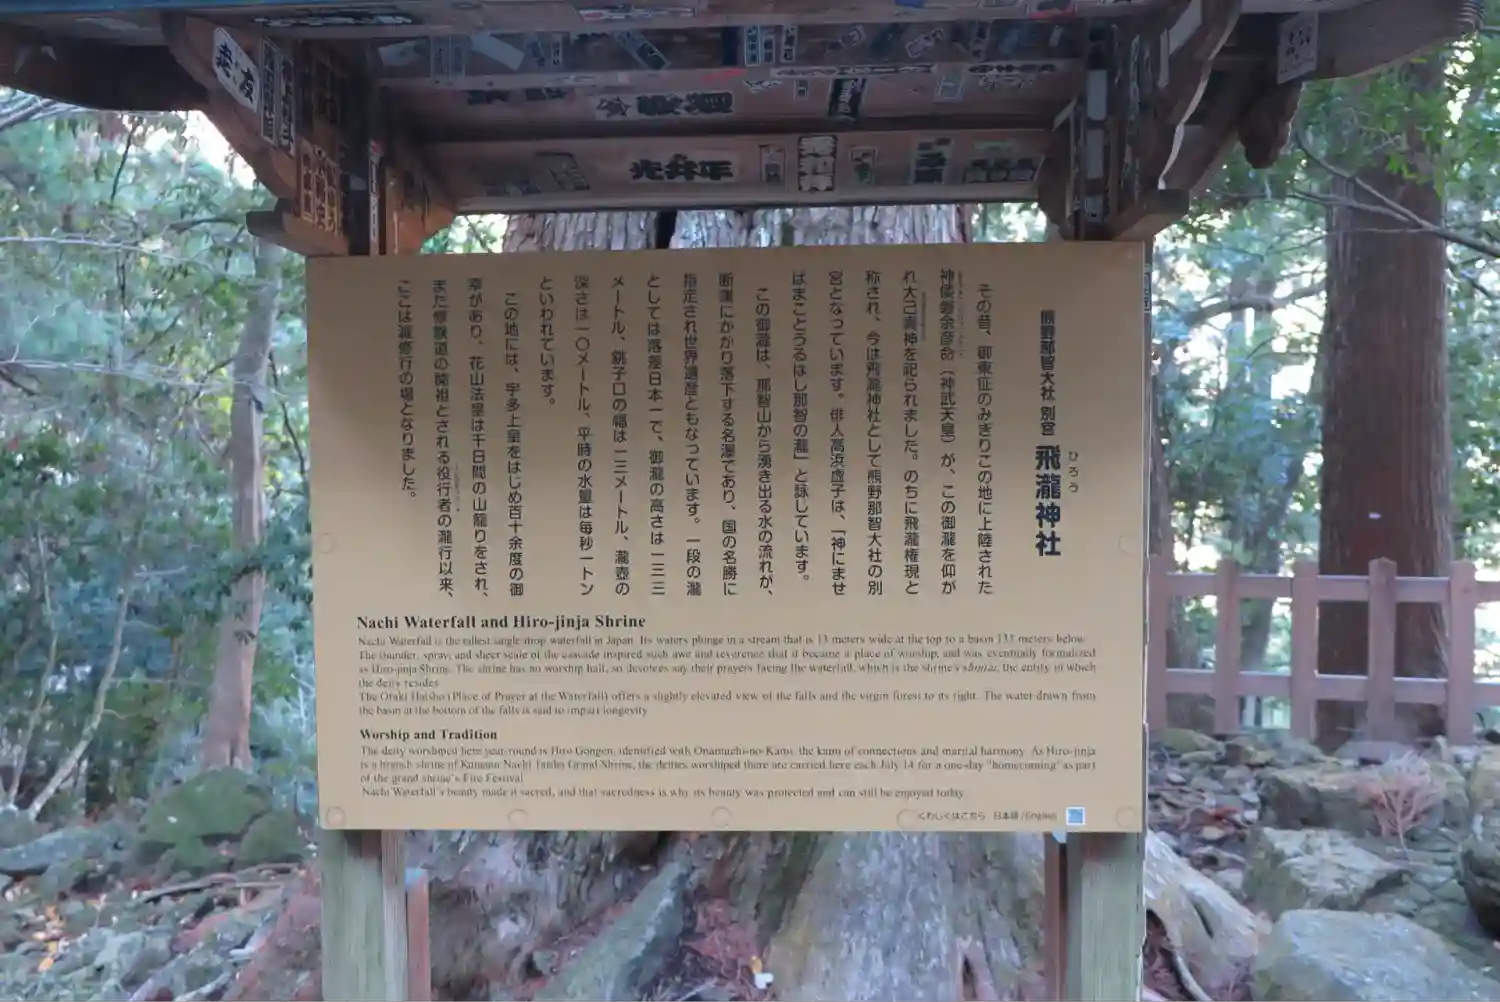 光弁平
熊野那智大社 別宮 飛瀧神社
ひろう
その昔、御東征のみぎりこの地に上陸された
神倭磐余彦命(神武天皇)が、この御瀧を仰が
れ大己貴神を祀られました。のちに飛瀧権現と
称され、今は飛瀧神社として熊野那智大社の別
宮となっています。俳人高浜虚子は、「神にませ
ばまことうるはし那智の瀧」と詠じています。
この御瀧は、那智山から湧き出る水の流れが、
断崖にかかり落下する名瀑であり、国の名勝に
指定され世界遺産ともなっています。一段の瀧
としては落差日本一で、御瀧の高さは一三三
メートル、銚子口の幅は一三メートル、瀧壺の
深さは一〇メートル、平時の水量は毎秒一トン
といわれています。
この地には、宇多上皇をはじめ百十余度の御
幸があり、花山法皇は千日間の山籠りをされ、
また修験道の開祖とされる役行者の瀧行以来、
ここは瀧修行の場となりました。
Nachi Waterfall and Hiro-jinja Shrine
Nachi Waterfall is the tallest single-drop waterfall in Japan. Its waters plunge in a stream that is 13 meters wide at the top to a basin 133 meters below.
The thunder, spray, and sheer scale of the cascade inspired such awe and reverence that it became a place of worship, and was eventually formalized
as Hiro-jinja Shrine. The shrine has no worship hall, so devotees say their prayers facing the waterfall, which is the shrine's shintai, the entity in which
the deity resides.
The Otaki Haisho (Place of Prayer at the Waterfall) offers a slightly elevated view of the falls and the virgin forest to its right. The water drawn from
the basin at the bottom of the falls is said to impart longevity.
Worship and Tradition
The deity worshiped here year-round is Hiro Gongen, identified with Onamuchi-no-Kami, the kami of connections and marital harmony. As Hiro-jinja
is a branch shrine of Kumano Nachi Taisha Grand Shrine, the deities worshiped there are carried here each July 14 for a one-day "homecoming" as part
of the grand shrine's Fire Festival.
Nachi Waterfall's beauty made it sacred, and that sacredness is why its beauty was protected and can still be enjoyed today.
くわしくはこちら 日本語/English